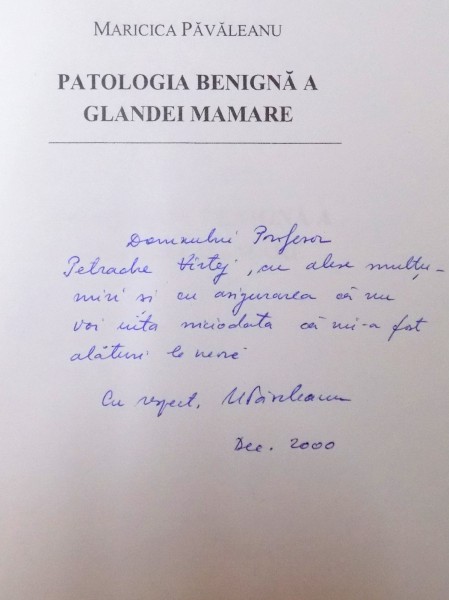 MARICICA PĂVĂLEANU
PATOLOGIA BENIGNĂ A
GLANDEI MAMARE
Domnului Profesor
Petrache Vîrtej, cu alese mulțu-
miri si cu asigurarea că nu
voi uita niciodata că mi-a fost
alături la nevoie
Cu respect, MPăvăleanu
Dec. 2000